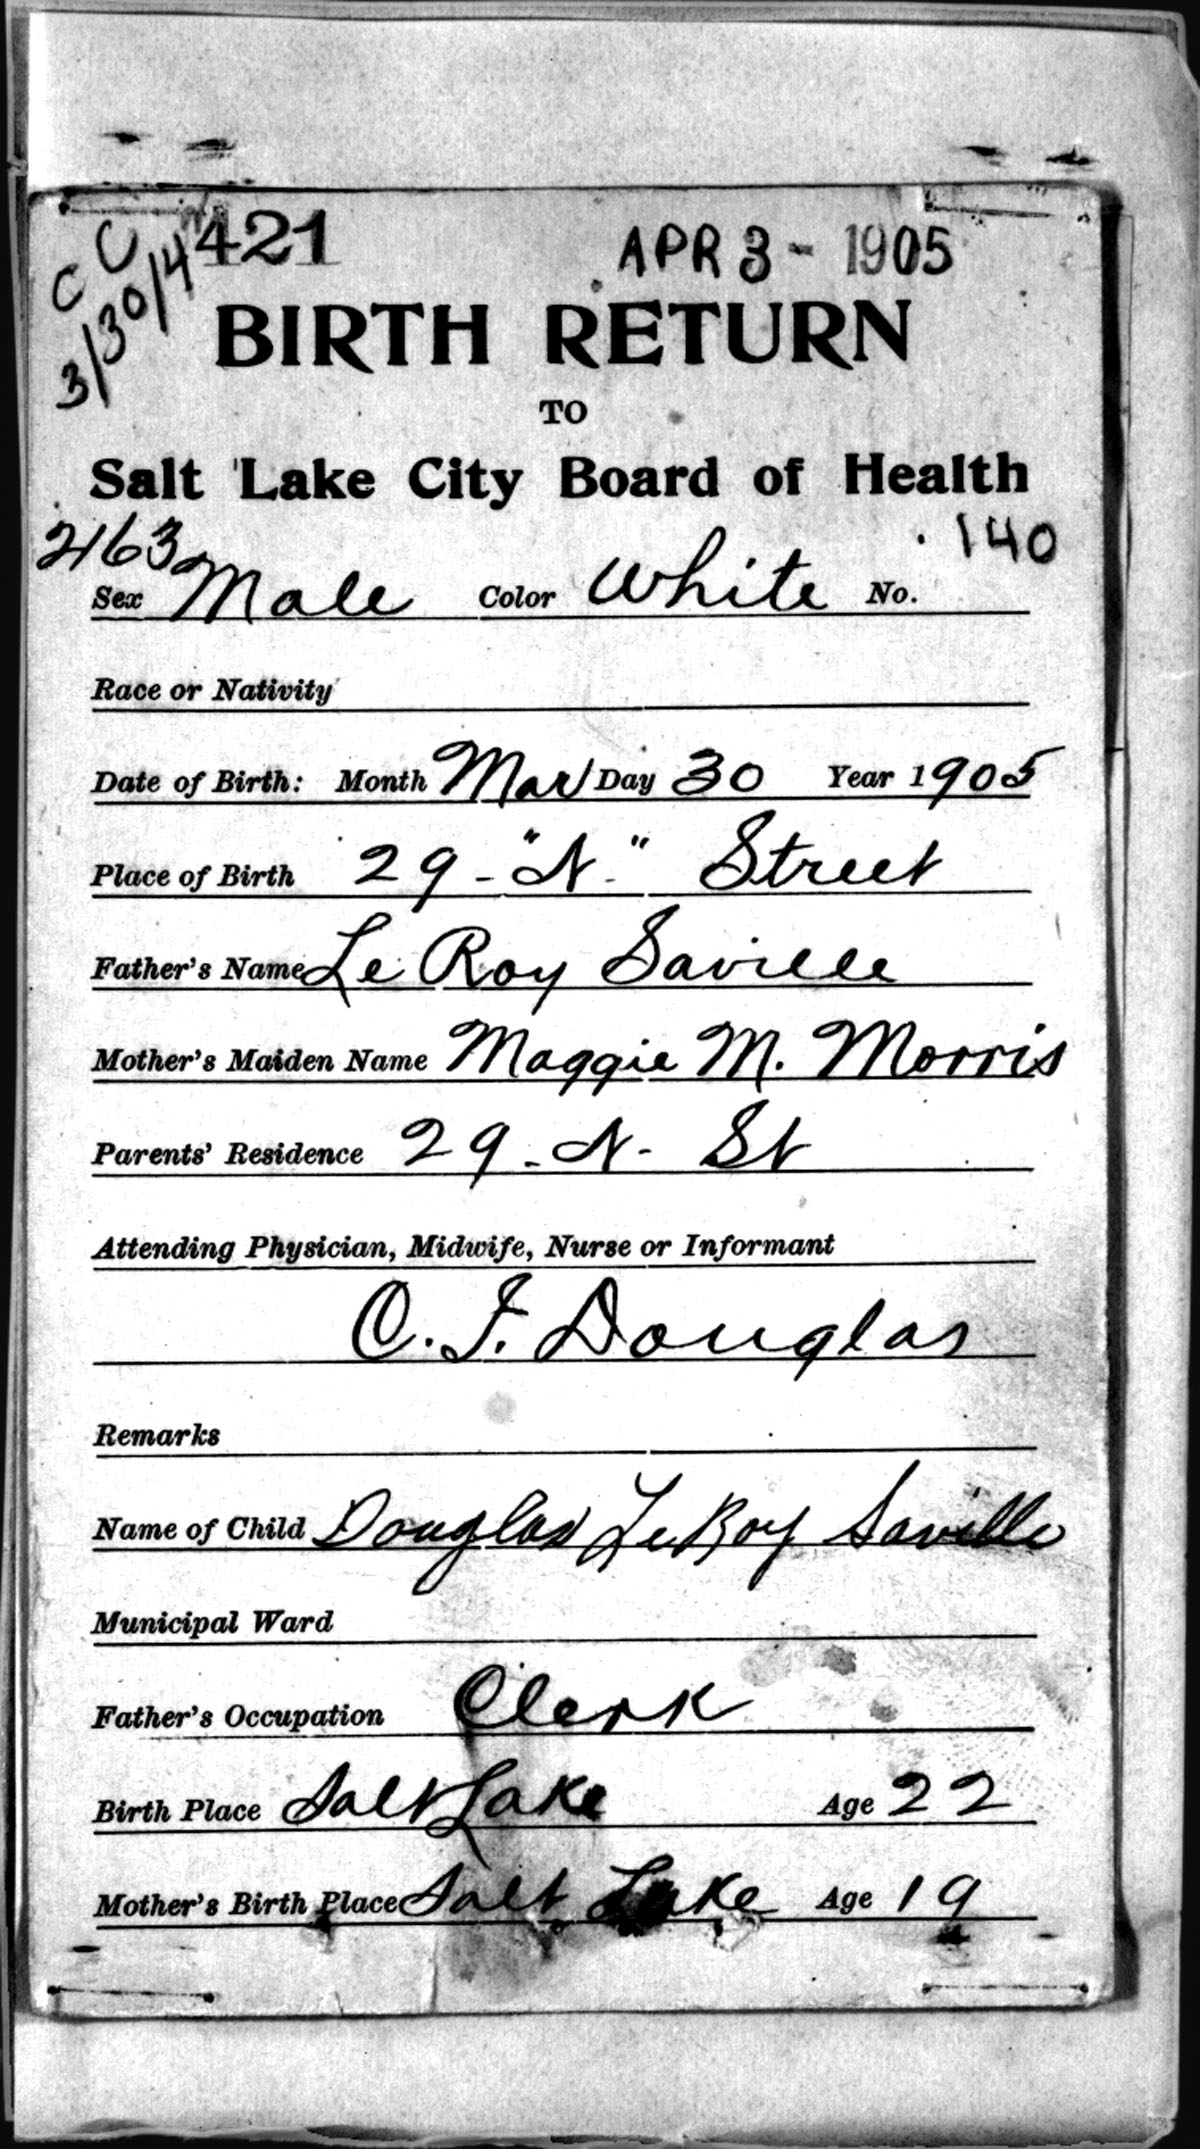 421 APR 3 - 1905
C C
3/30/4
BIRTH RETURN
TO
Salt Lake City Board of Health
2163 140
Sex Male Color White No.
Race or Nativity
Date of Birth: Month Mar Day 30 Year 1905
Place of Birth 29 - "N." Street
Father's Name Le Roy Saville
Mother's Maiden Name Maggie M. Morris
Parents' Residence 29 - N - St
Attending Physician, Midwife, Nurse or Informant
O. F. Douglas
Remarks
Name of Child Douglas LeRoy Saville
Municipal Ward
Father's Occupation Clerk
Birth Place Salt Lake Age 22
Mother's Birth Place Salt Lake Age 19